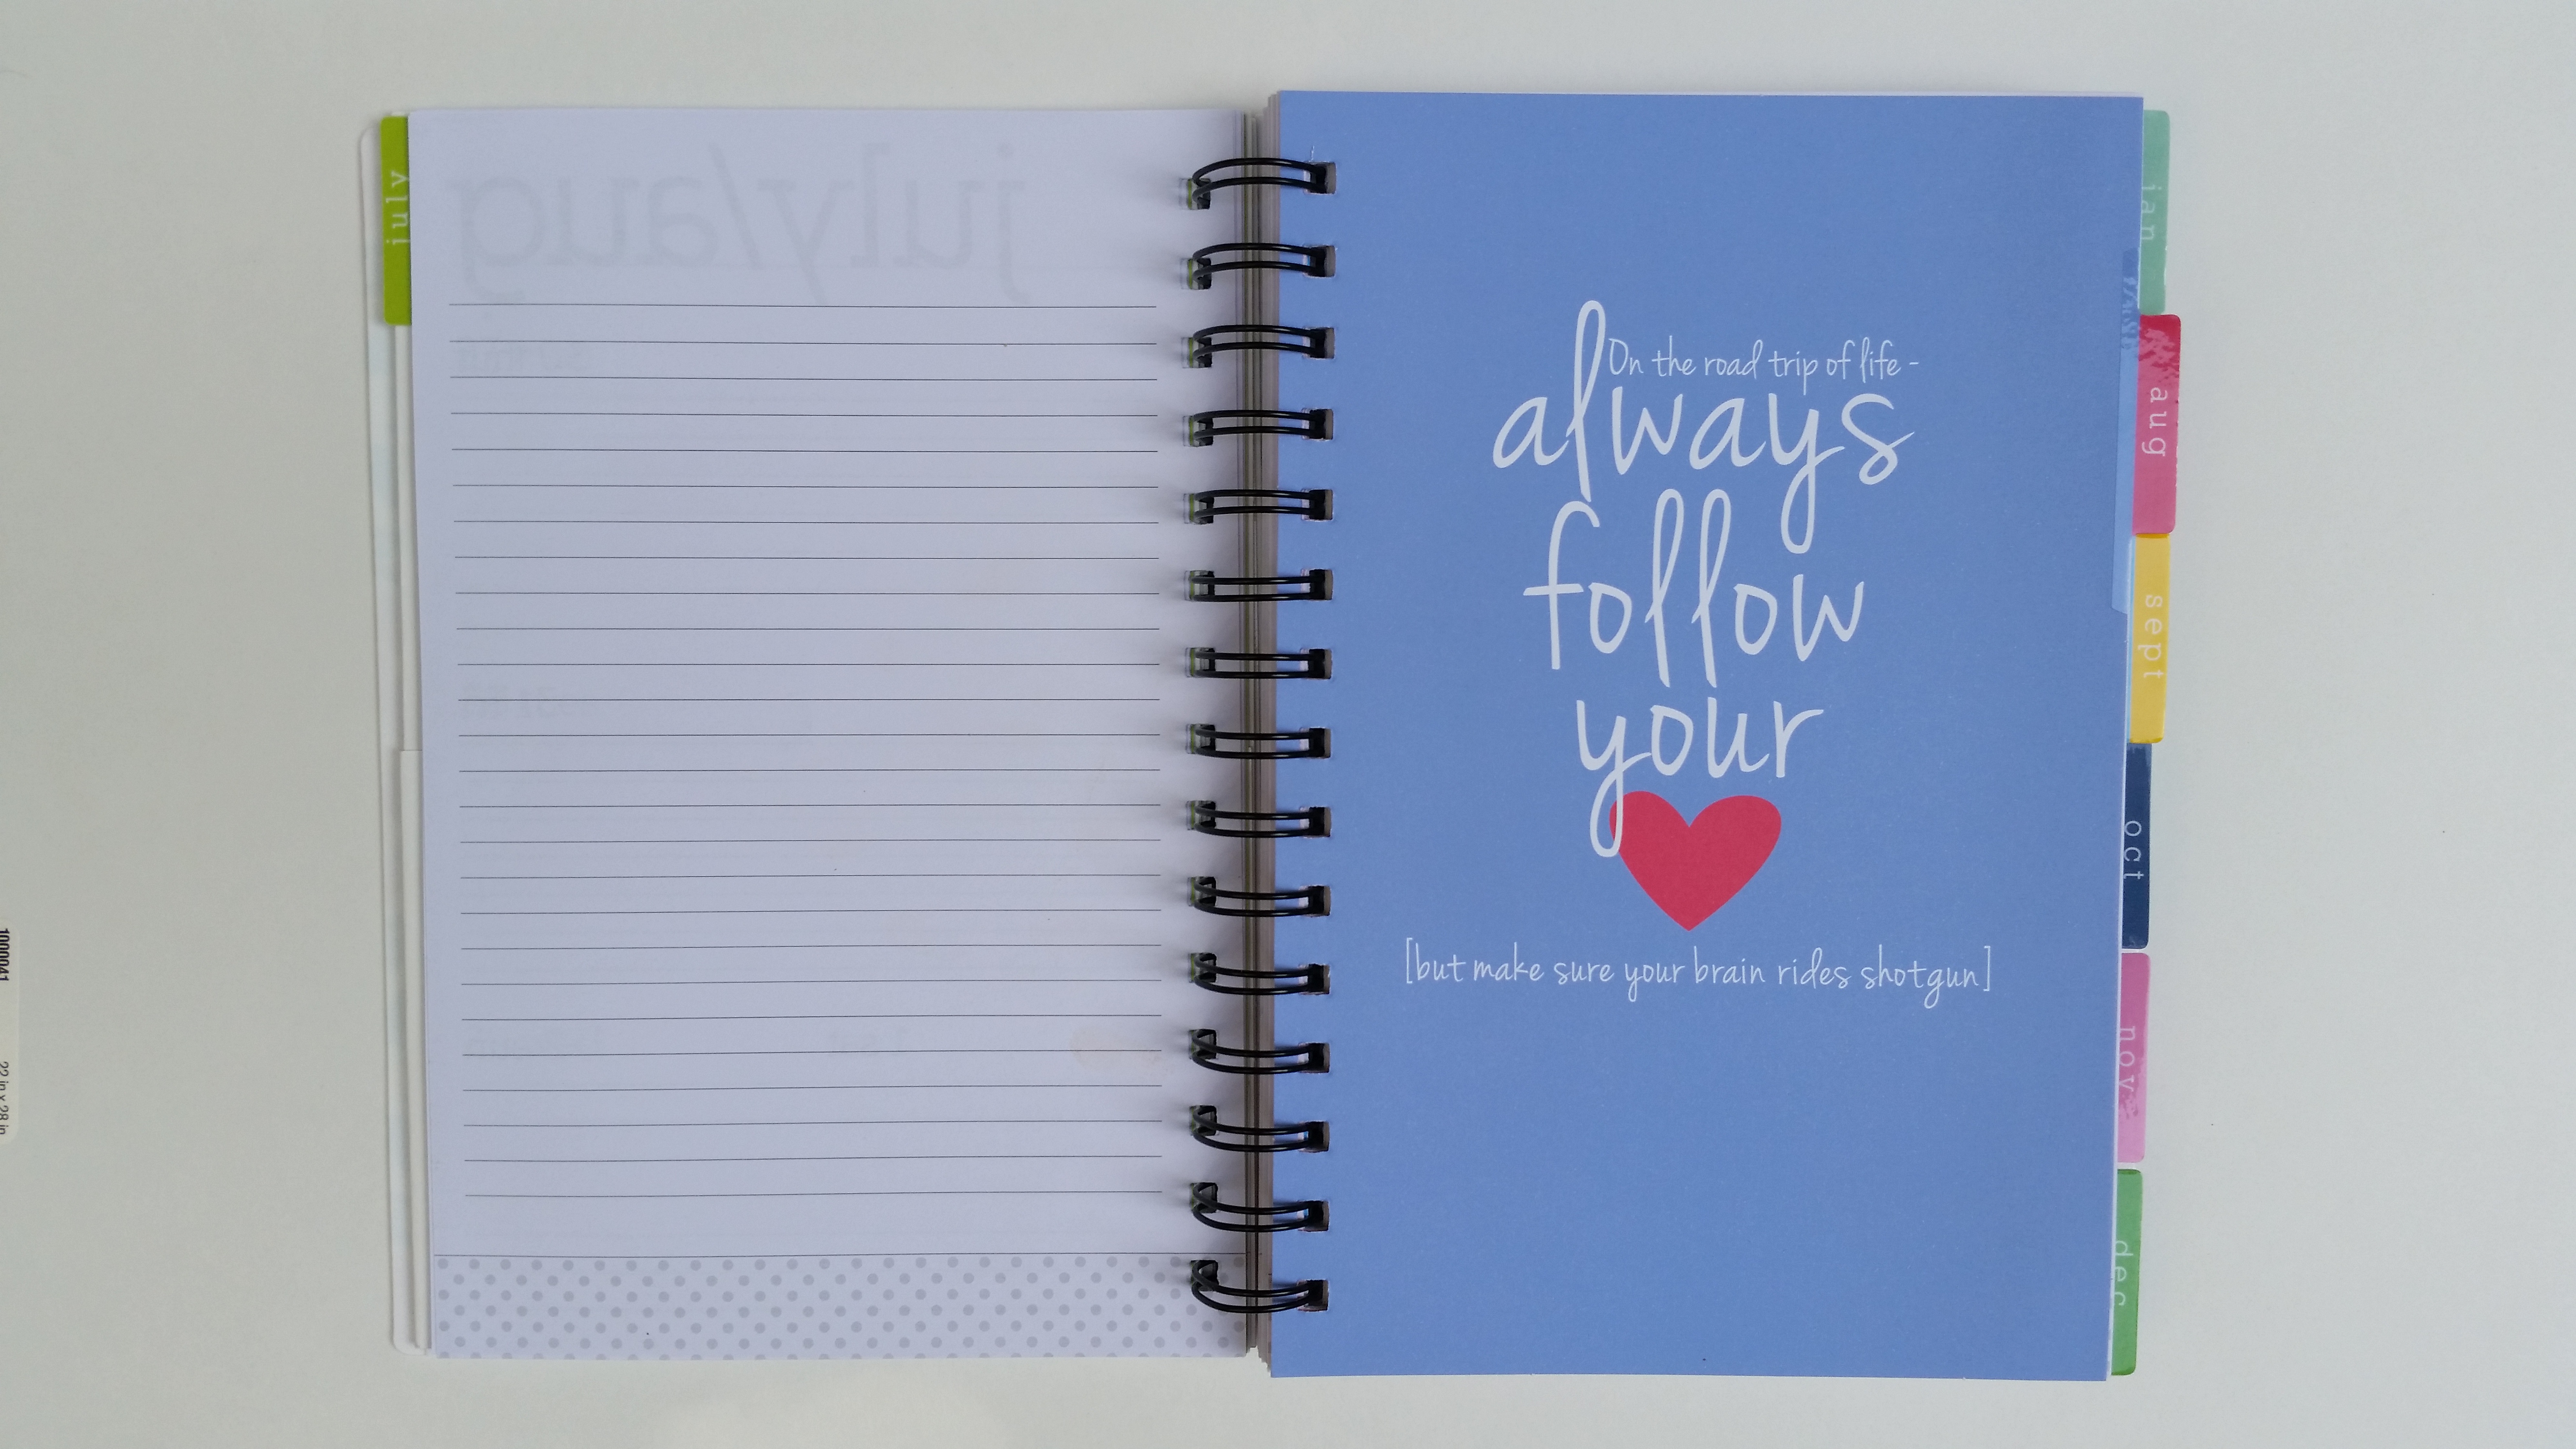 july
july/aug
On the road trip of life -
always
follow
your
[but make sure your brain rides shotgun]
jan
aug
sept
oct
nov
dec
1000041
22 in x 28 in